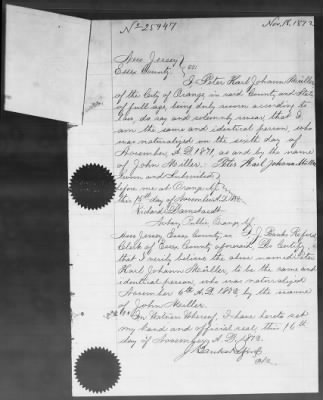 No 25947 Nov. 18. 1872
New Jersey
Essex County } ss:
I Peter Karl Johann Müller
of the City of Orange in said County and State
of full age, being duly sworn according to
law, do say and solemnly swear that I
am the same and identical person, who
was naturalized on the sixth day of
November A.D. 187 as and by the name
of John Miller. Peter Karl Johann Müller
Sworn and Subscribed
before me at Orange N.J.
this 15th day of November A.D. 1872
Richard
Notary Public Orange N.J.
New Jersey Essex County, ss I J. Banks Reford
Clerk of Essex County aforesaid Do Certify
that I verily believe the above named Peter
Karl Johann Müller to be the same and
identical person who was naturalized
November 6th A.D. 1872, by the name
of John Miller.
In Witness Whereof, I have hereto set
my hand and official seal this 16th
day of November A.D. 1872.
J. Banks Reford
Clk.